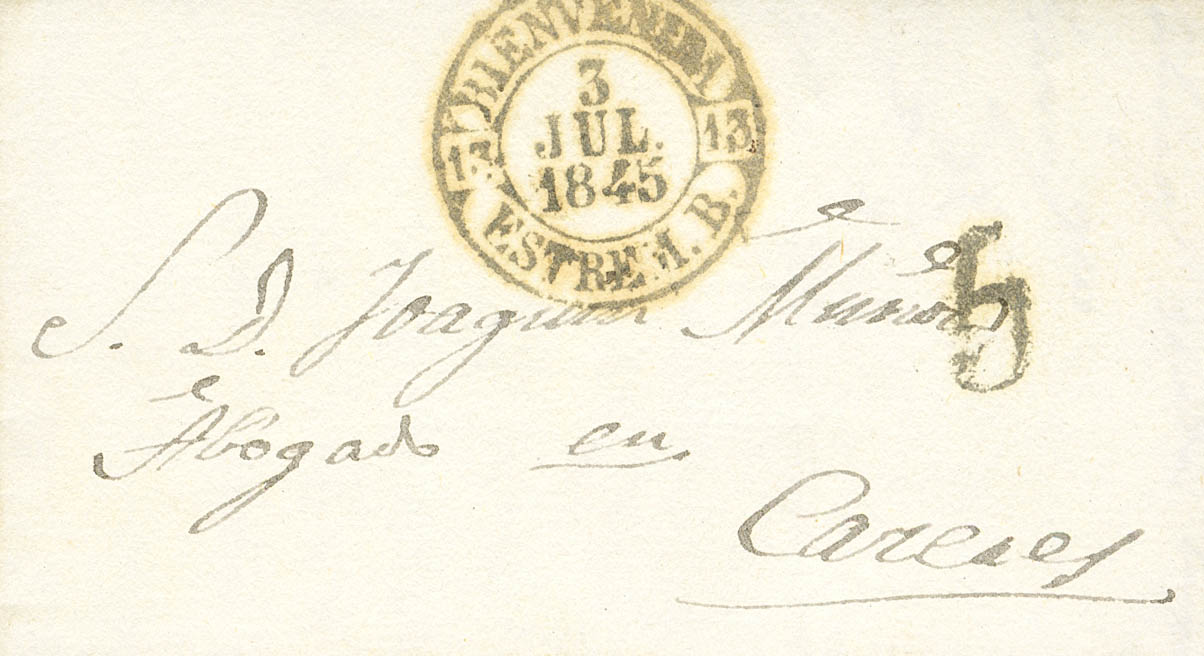 BIENVENIDA
13 13
3
JUL.
1845
ESTREM. B.
S. D. Joaquin Muños
5
Abogado en
Caceres